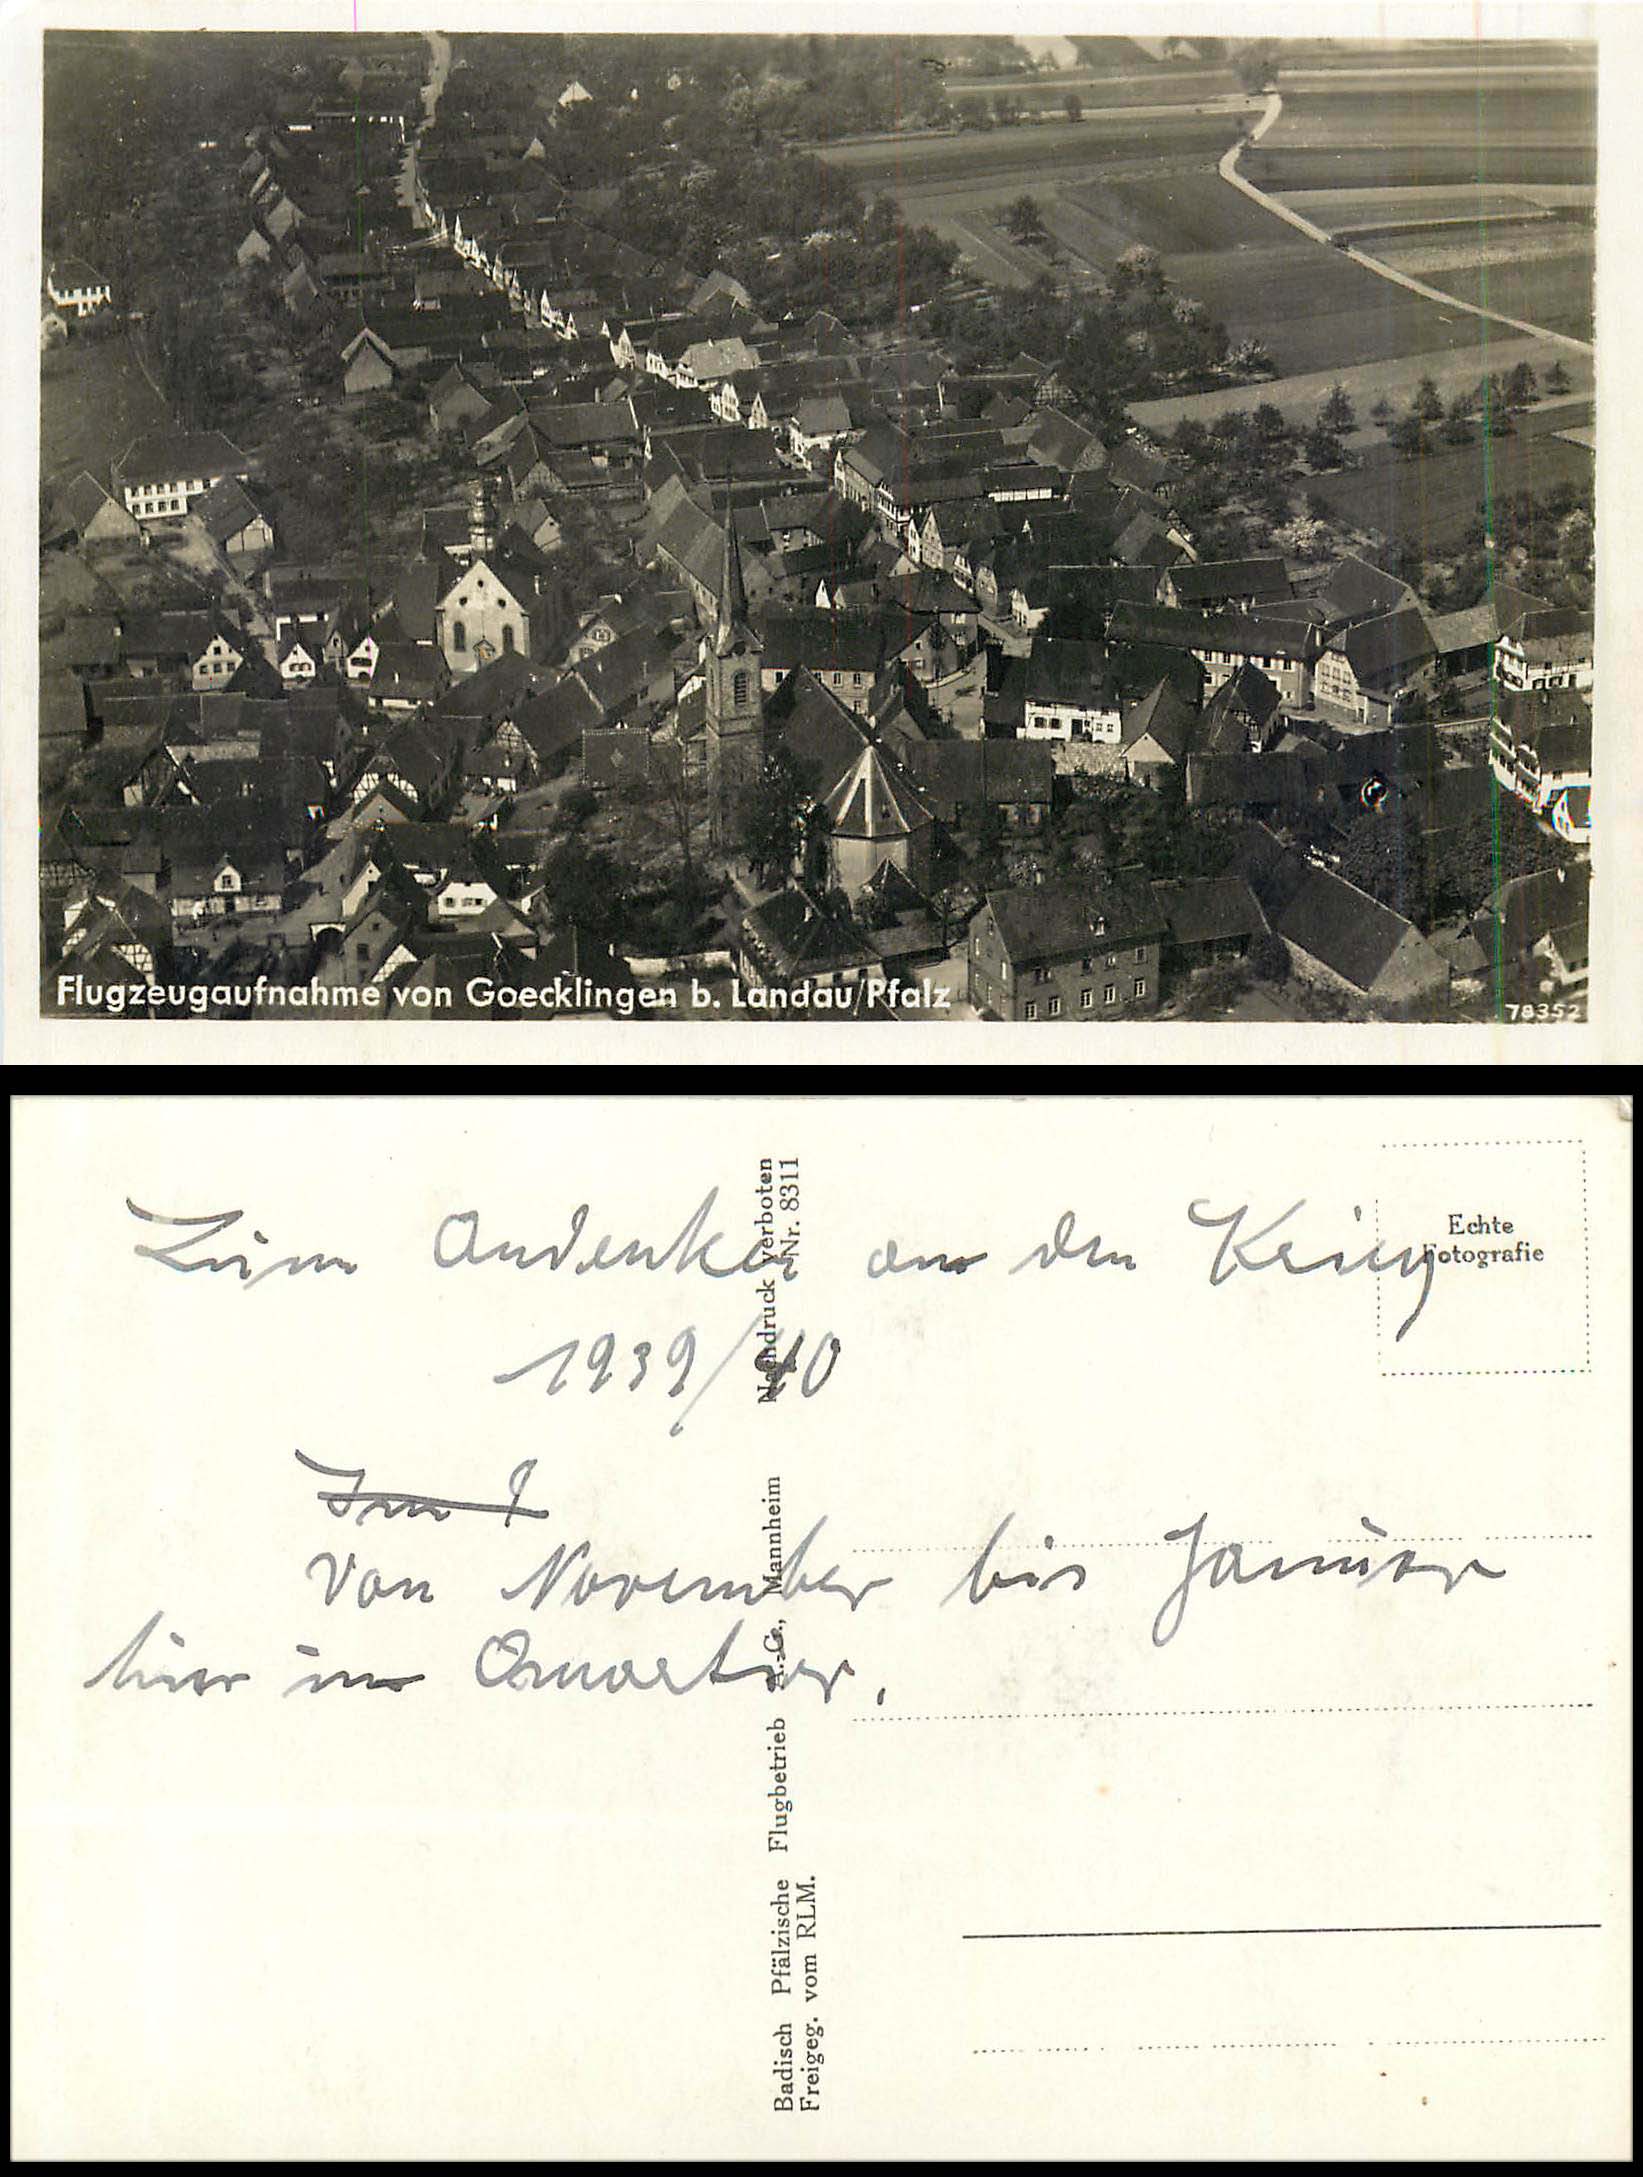 Flugzeugaufnahme von Goecklingen b. Landau/Pfalz
78352
Zum Andenken an den Krieg
1939/40
Im
Von November bis Januar
hier im Quartier.
Echte
Fotografie
Badisch Pfälzische Flugbetrieb A.-G., Mannheim Nachdruck verboten
Freigeg. vom RLM. Nr. 8311